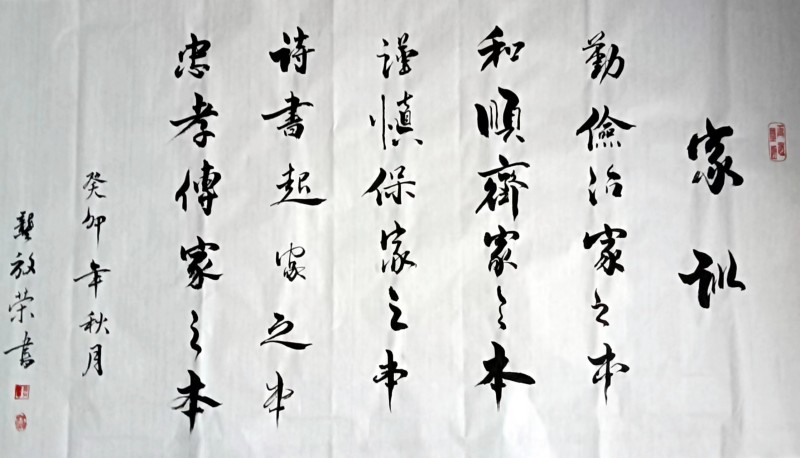 家訓
勤儉治家之本
和順齊家之本
謹慎保家之本
詩書起家之本
忠孝傳家之本
癸卯年秋月
龔放榮書